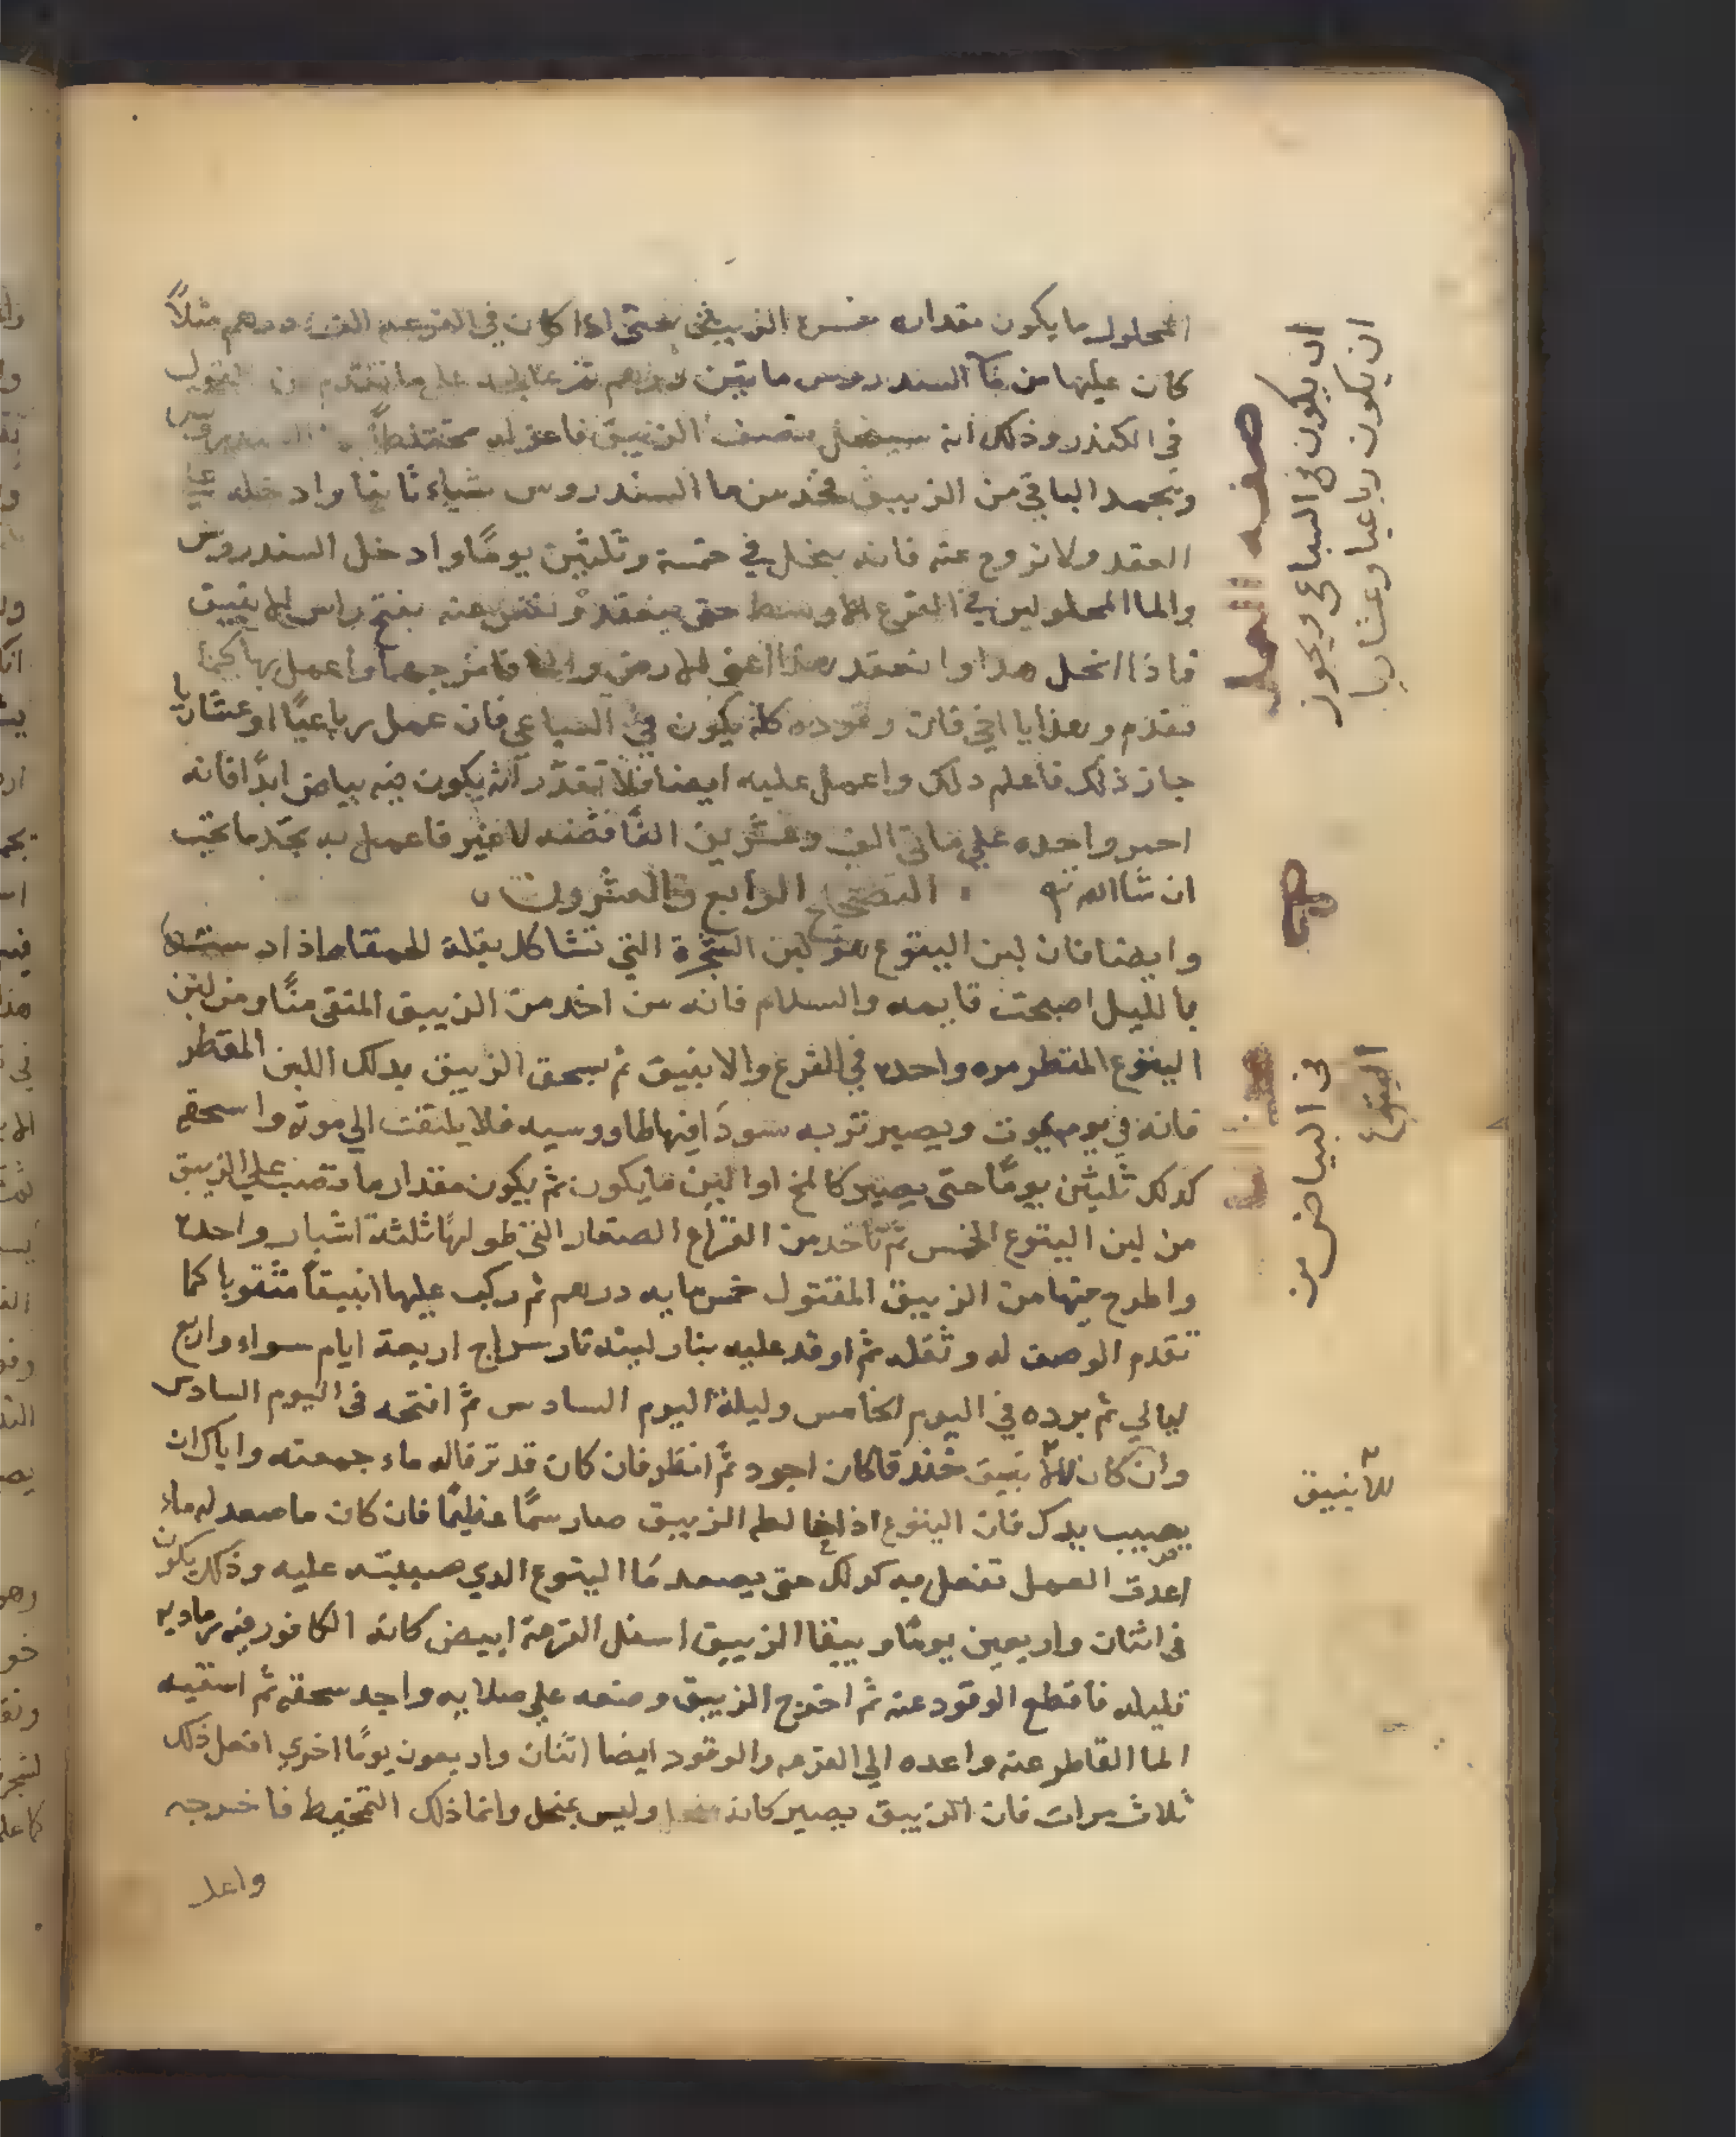 المحلول ما يكون مقداره خمس الزيبق حتى اذا كان في القرعه الف درهم مثلاً
كان عليها من ما السندروس مايتين درهم ثم على ما تقدم القول
في الكندر وذلك انه سينحل نصف الزيبق فاعزله محتفظاً
ويجمد الباقي من الزيبق فخذ من ما السندروس شياء ثانيا وادخله
العقد ولا تروح عنه فانه ينحل في خمسة وثلثين يومًا وادخل السندروس
والما المحلولين في القرع الاوسط حتى ينعقد وتفتش عنه بفتح راس الانبيق
فاذا انحل هذا وانعقد هذا اعني الارض والما فامزجهما واعمل بها كما
تقدم وهذا يا اخي فان وقوده كله يكون في السباعي فان عمل رباعيًا او عشاريا
جاز ذلك فاعلم ذلك واعمل عليه ايضا فلا تقدّر انه يكون منه بياض ابدًا فانه
احمر واحده علي مايتي الف وعشرين الفًا فضه لا غير فاعمل به تجد ما تحب
ان شا الله تع ، التصحيح الرابع والعشرون
وايضا فان لبن اليتوع هو لبن الشجرة التي تشاكل بقلة الحمقاء اذا
بالليل اصبحت قايمه والسلام فانه من اخذ من الزيبق المنقى منًّا ومن لبن
اليتوع المقطر مره واحده في القرع والانبيق ثم سحق الزيبق بذلك اللبن المقطر
فانه في يوم يموت ويصير تربه سودَا فيها طاووسيه فلا يلتفت الي موته واسحقه
كذلك ثلثين يومًا حتى يصير كالمخ او الين ما يكون ثم يكون مقدار ما تصب علي الزيبق
من لبن اليتوع الخمس ثم تاخذ من القراع الصغار التي طولها ثلثة اشبار واحده
واطرح فيها من الزيبق المقتول خمس مايه درهم ثم ركب عليها انبيقاً مثقوبا كما
تقدم الوصف له وثقله ثم اوقد عليه بنار لينه نار سراج اربعة ايام سواء واربع
ليالي ثم برده في اليوم الخامس وليلة اليوم السادس ثم افتحه في اليوم السادس
وان كان الانبيق خندقا كان اجود ثم انظر فان كان قد ترقا له ماء جمعته واياك ان
يصيب يدك فان اليتوع اذا خالطه الزيبق صار سمًا عظيمًا فان كان ما صعد له ماء
اعدت العمل تفعل به كذلك حتى يصعد مَا اليتوع الذي صببته عليه وذلك يكون
في اثنان واربعين يومًا ويبقا الزيبق اسفل القرعة ابيض كانه الكافور فيه رماديه
قليله فاقطع الوقود عنه ثم اخرج الزيبق وضعه علي صلايه واجد سحقه ثم اسقيه
الما القاطر عنه واعده الي القرعه والوقود ايضا اثنان واربعون يومًا اخري افعل ذلك
ثلاث مرات فان الزيبق يصير كانه منحل وليس بمنحل وانما ذلك التمخيط فاخرجه
واعد
صفه العمل
ان يكون في السباعي ويجوز
ان يكون رباعيا وعشاريا
في البياض من
اليتوع
الانبيق